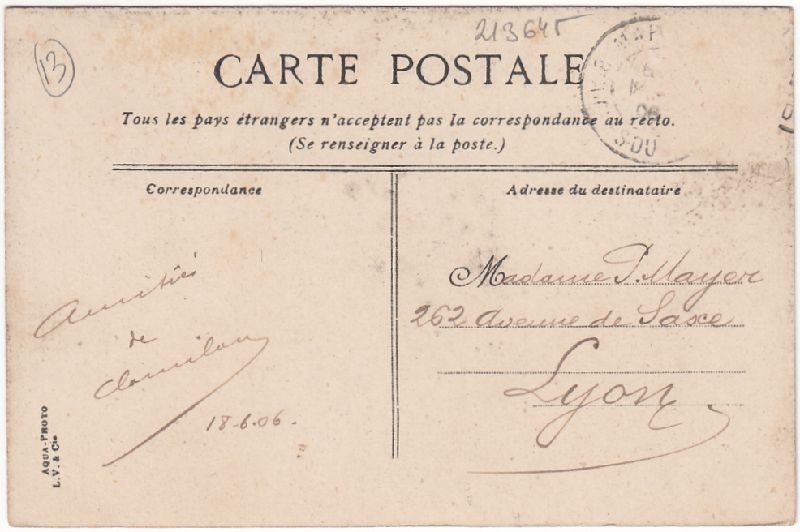 13
213645
CARTE POSTALE
Tous les pays étrangers n'acceptent pas la correspondance au recto.
(Se renseigner à la poste.)
Correspondance
Adresse du destinataire
Amitiés
de
18-6-06-
Madame P. Mayer
262 Avenue de Saxe
Lyon
AQUA-PHOTO
L.V. & Cie